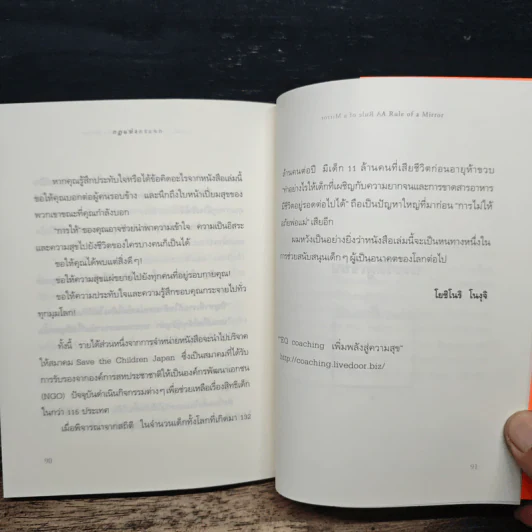 กฎแห่งกระจก
หากคุณรู้สึกประทับใจหรือได้ข้อคิดอะไรจากหนังสือเล่มนี้
ขอให้คุณบอกต่อผู้คนรอบข้าง และนึกถึงใบหน้าเปี่ยมสุขของ
พวกเขาขณะที่คุณกำลังบอก
"การให้" ของคุณอาจช่วยนำพาความเข้าใจ ความเป็นอิสระ
และความสุขไปยังชีวิตของใครบางคนก็เป็นได้
ขอให้คุณได้พบแต่สิ่งดีๆ!
ขอให้ความสุขแผ่ขยายไปยังทุกคนที่อยู่รอบกายคุณ!
ขอให้ความประทับใจและความรู้สึกขอบคุณกระจายไปทั่ว
ทุกมุมโลก!
ทั้งนี้ รายได้ส่วนหนึ่งจากการจำหน่ายหนังสือจะนำไปบริจาค
ให้สมาคม Save the Children Japan ซึ่งเป็นสมาคมที่ได้รับ
การรับรองจากองค์การสหประชาชาติให้เป็นองค์กรพัฒนาเอกชน
(NGO) ปัจจุบันดำเนินกิจกรรมต่างๆ เพื่อช่วยเหลือเรื่องสิทธิเด็ก
ในกว่า 110 ประเทศ
เมื่อพิจารณาจากสถิติ ในจำนวนเด็กทั้งโลกที่เกิดมา 132
90
A Rule of a Mirror
ล้านคนต่อปี มีเด็ก 11 ล้านคนที่เสียชีวิตก่อนอายุห้าขวบ
"ทำอย่างไรให้เด็กที่เผชิญกับความยากจนและการขาดสารอาหาร
มีชีวิตอยู่รอดต่อไปได้" ถือเป็นปัญหาใหญ่ที่มาก่อน "การไม่ให้
อภัยพ่อแม่" เสียอีก
ผมหวังเป็นอย่างยิ่งว่าหนังสือเล่มนี้จะเป็นหนทางหนึ่งใน
การช่วยสนับสนุนเด็กๆ ผู้เป็นอนาคตของโลกต่อไป
โยชิโนริ โนงุจิ
"EQ coaching เพิ่มพลังสู่ความสุข"
http://coaching.livedoor.biz/
91